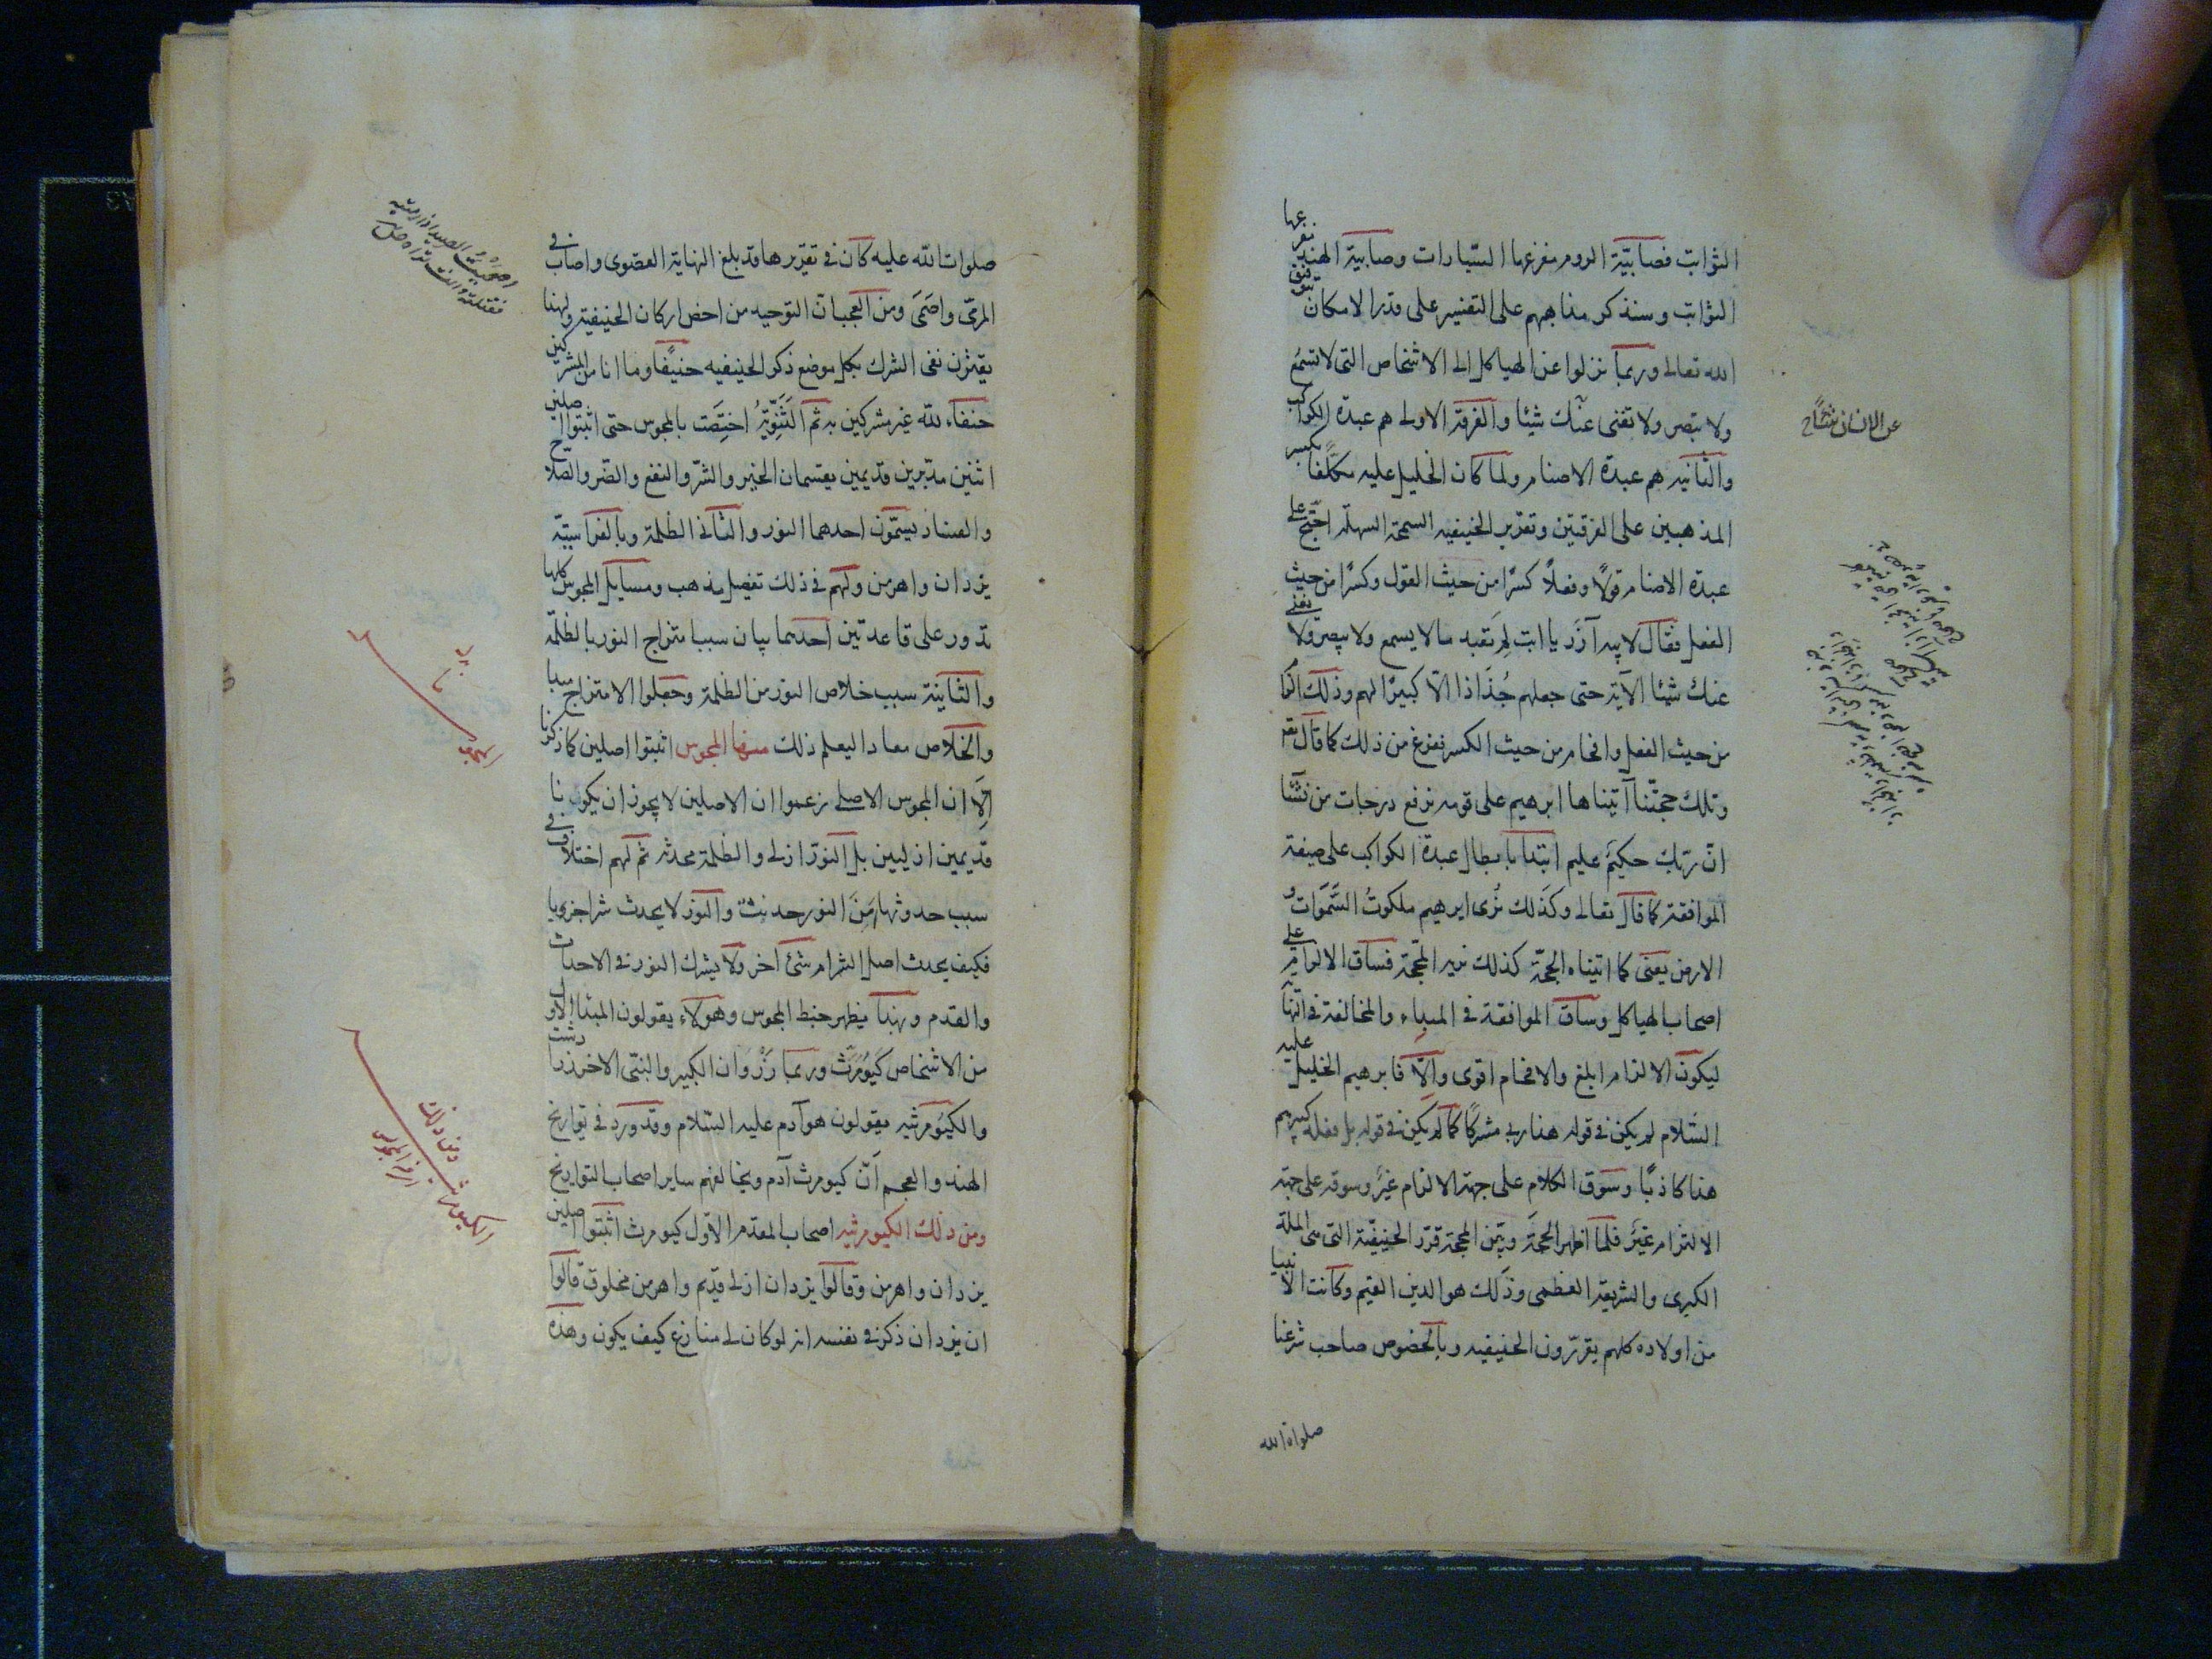 الثوابت فصابيّة الروم مفزعها السّيارات وصابية الهند مفزعها
الثوابت وسنذكر مذاهبهم على التفسير على قدر الامكان بتوفيق
الله تعالى وربما نزلوا عن الهياكل الى الاشخاص التى لا تسمع
ولا تبصر ولا تغنى عنك شيئا والفرقة الاولى هم عبدة الكواكب
والثانيه هم عبدة الاصنام ولما كان الخليل عليه مكلّفا بكسر
المذهبين على الفرقتين وتقرير الحنيفيه السمحة السهلة احتج على
عبدة الاصنام قولًا وفعلًا كسرًا من حيث القول وكسرًا من حيث
الفعل فقال لابيه آزر يا ابت لم تعبد مالا يسمع ولا يبصر ولا يغنى
عنك شيئا الآية حتى جعلهم جُذاذا الّا كبيرًا لهم وذلك
من حيث الفعل وافحام من حيث الكسر ففرغ من ذلك كما قال تعـ
وتلك حجّتنا آتيناها ابرهيم على قومه نرفع درجات من نشا
انّ ربك حكيم عليم ابتدا بابطال عبدة الكواكب على صيغة
الموافقة كما قال تعالى وكذلك نُرى ابرهيم ملكوت السّموات و
الارض يعنى كما اتيناه الحجّة كذلك نريه المحجّة فساق الالزام على
اصحاب الهياكل وساق الموافقة فى المبداء والمخالفة فى النها
ليكون الالزام ابلغ والافحام اقوى والّا فابرهيم الخليل عليه
السّلام لم يكن فى قوله هذا ربى مشركًا كما لم يكن فى قوله بل فعله كبيرهم
هذا كاذبًا وسوق الكلام على جهة الالزام غير وسوقه على جهة
الالتزام غير فلما اظهر الحجة وبيّن المحجة قرّر الحنيفيّة التى هى الملة
الكبرى والشريعة العظمى وذلك هو الدين القيم وكانت الانبيا
من اولاده كلهم يقررّون الحنيفيه وبالخصوص صاحب شرعنا
صلواة الله
صلوات الله عليه كان فى تقريرها قد بلغ النهاية القصوى واصاب فى
المرمى واصمى ومن العجب ان التوحيد من اخص اركان الحنيفية ولهذا
يقترن نفى الشرك بكل موضع ذكر الحنيفيه حنيفًا وما انا من المشركين
حنفاء لله غير مشركين به ثم الثنويّة اختصّت بالمجوس حتى اثبتوا اصلين
اثنين مدبرين قديمين يقتسمان الخير والشرّ والنفع والضر والصلاح
والفساد يسمّون احدهما النور والثانى الظلمة وبالفارسيّة
يزدان واهرمن ولهم فى ذلك تفصيل مذهب ومسايل المجوس كلها
تدور على قاعدتين احدهما بيان سبب امتزاج النور بالظلمة
والثانية سبب خلاص النور من الظلمة وجعلوا الامتزاج مبدا
والخلاص معادا ليعلم ذلك منها المجوس اثبتوا اصلين كما ذكرنا
الّا ان المجوس الاصلى زعموا ان الاصلين لا يجوز ان يكونا
قديمين ازليين بل النور ازلى والظلمة محدثه ثم لهم اختلاف فى
سبب حدوثها من النور حدثت والنور لا يحدث شرا جزويا
فكيف يحدث اصل الشر ام شئ آخر ولا يشرك النور فى الاحداث
والقدم وبهذا يظهر خبط المجوس وهولاء يقولون المبدا الاول
من الاشخاص كيومرث وربما زروان الكبير والنبى الاخر زردشت
والكيومرثيه يقولون هو آدم عليه السّلام وقد ورد فى تواريخ
الهند والعجم انّ كيومرث آدم ويخالفهم ساير اصحاب التواريخ
ومن ذلك الكيومرثيه اصحاب المقدم الاوّل كيومرث اثبتوا اصلين
يزدان واهرمن وقالوا يزدان ازلى قديم واهرمن مخلوق قالوا
ان يزدان ذكر فى نفسه انه لو كان لى منازع كيف يكون وهذه